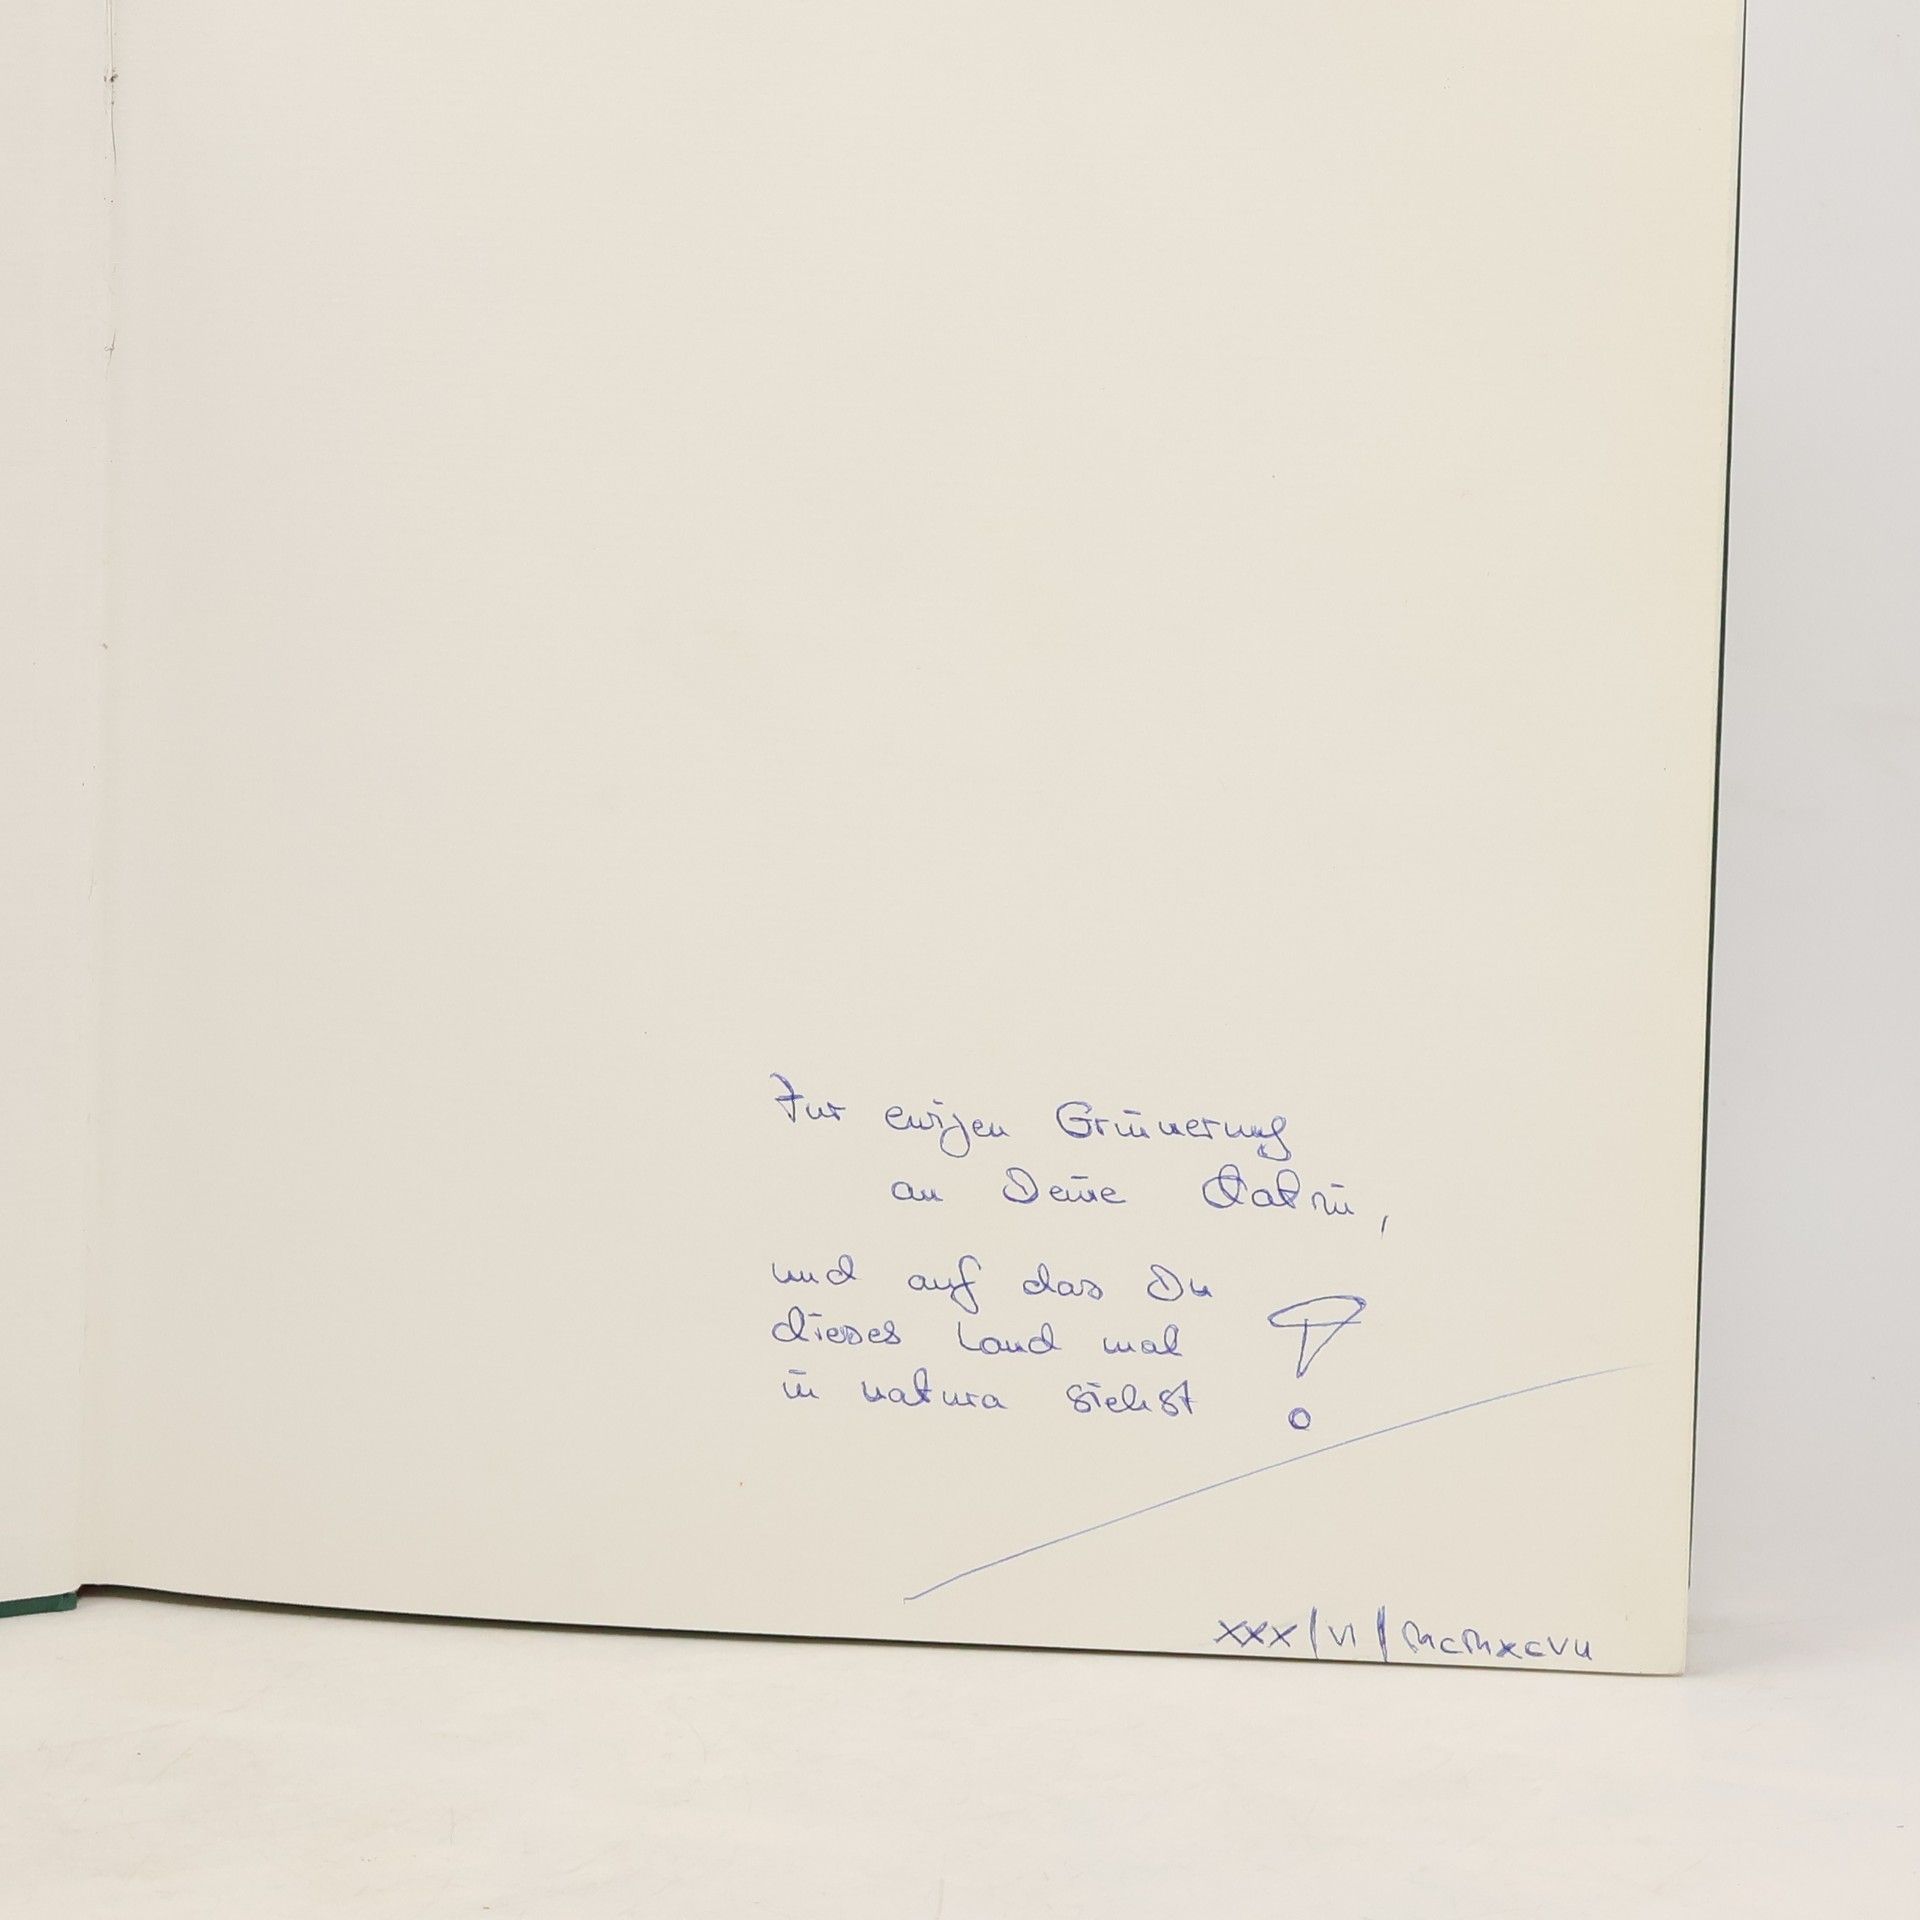 Zur ewigen Erinnerung
an Deine Katrin,
und auf das Du
dieses Land mal
in natura siehst !
XXX/VI/MCMXCVII